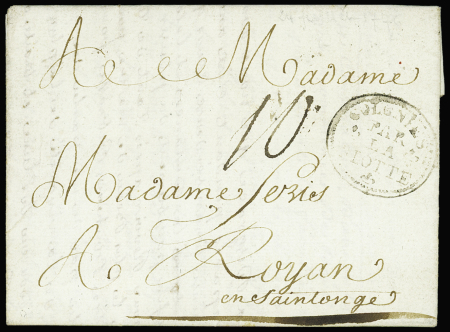 A Madame
10
COLONIES
PAR
LA
Madame Seriés
A Royan
en Saintonge